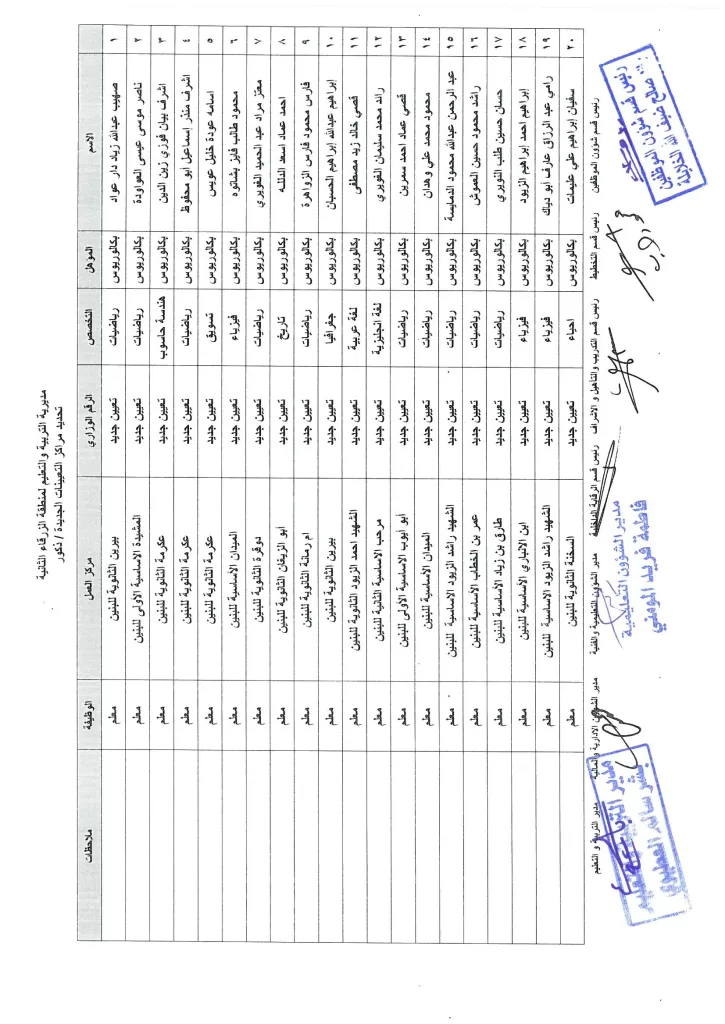 مديرية التربية والتعليم لمنطقة الزرقاء الثانية
تحديد مراكز التعيينات الجديدة / ذكور
الاسم المؤهل التخصص الرقم الوزاري مركز العمل الوظيفة ملاحظات
١ صهيب عبدالله زياد دار عواد بكالوريوس رياضيات تعيين جديد بيرين الثانوية للبنين معلم
٢ ناصر موسى عيسى العواودة بكالوريوس رياضيات تعيين جديد المشيدة الاساسية الأولى للبنين معلم
٣ اشرف بيان فوزي زين الدين بكالوريوس هندسة حاسوب تعيين جديد عكرمة الثانوية للبنين معلم
٤ اشرف منذر إسماعيل ابو محفوظ بكالوريوس رياضيات تعيين جديد عكرمة الثانوية للبنين معلم
٥ اسامه عودة خليل عويس بكالوريوس تسويق تعيين جديد عكرمة الثانوية للبنين معلم
٦ محمود طالب فايز بشتاوه بكالوريوس فيزياء تعيين جديد الميدان الاساسية للبنين معلم
٧ معتز مراد عبد الحميد الغويري بكالوريوس رياضيات تعيين جديد دوقرة الثانوية للبنين معلم
٨ احمد عماد اسعد الدلله بكالوريوس تاريخ تعيين جديد أبو الزيغان الثانوية للبنين معلم
٩ فارس محمود فارس الزواهرة بكالوريوس رياضيات تعيين جديد ام رمانة الثانوية للبنين معلم
١٠ إبراهيم عبدالله إبراهيم الحسبان بكالوريوس جغرافيا تعيين جديد بيرين الثانوية للبنين معلم
١١ قصي خالد زيد مصطفى بكالوريوس لغة عربية تعيين جديد الشهيد احمد الزيود الثانوية للبنين معلم
١٢ رائد محمد سليمان الغويري بكالوريوس لغة انجليزية تعيين جديد مرحب الاساسية الثانية للبنين معلم
١٣ قصي عماد احمد سمرين بكالوريوس رياضيات تعيين جديد أبو أيوب الاساسية الأولى للبنين معلم
١٤ محمود محمد علي وهدان بكالوريوس رياضيات تعيين جديد الميدان الاساسية للبنين معلم
١٥ عبد الرحمن عبدالله محمود الدمايسة بكالوريوس رياضيات تعيين جديد الشهيد راشد الزيود الاساسية للبنين معلم
١٦ راشد محمود حسين العموش بكالوريوس رياضيات تعيين جديد عمر بن الخطاب الاساسية للبنين معلم
١٧ حسان حسين طلب النويري بكالوريوس رياضيات تعيين جديد طارق بن زياد الاساسية للبنين معلم
١٨ إبراهيم احمد إبراهيم الزيود بكالوريوس فيزياء تعيين جديد ابن الانباري الاساسية للبنين معلم
١٩ رامي عبد الرزاق عارف أبو دياك بكالوريوس فيزياء تعيين جديد الشهيد راشد الزيود الاساسية للبنين معلم
٢٠ سفيان إبراهيم علي عليمات بكالوريوس احياء تعيين جديد السخنة الثانوية للبنين معلم
رئيس قسم شؤون الموظفين رئيس قسم التخطيط رئيس قسم التدريب والتأهيل و الاشراف رئيس قسم الرقابة الداخلية مدير الشؤون التعليمية والفنية مدير الشؤون الادارية والمالية مدير التربية و التعليم
رئيس قسم شؤون الموظفين
صالح ضيف الله الخلايلة
مدير الشؤون التعليمية
فاطمة فريد المومني
مدير التربية والتعليم